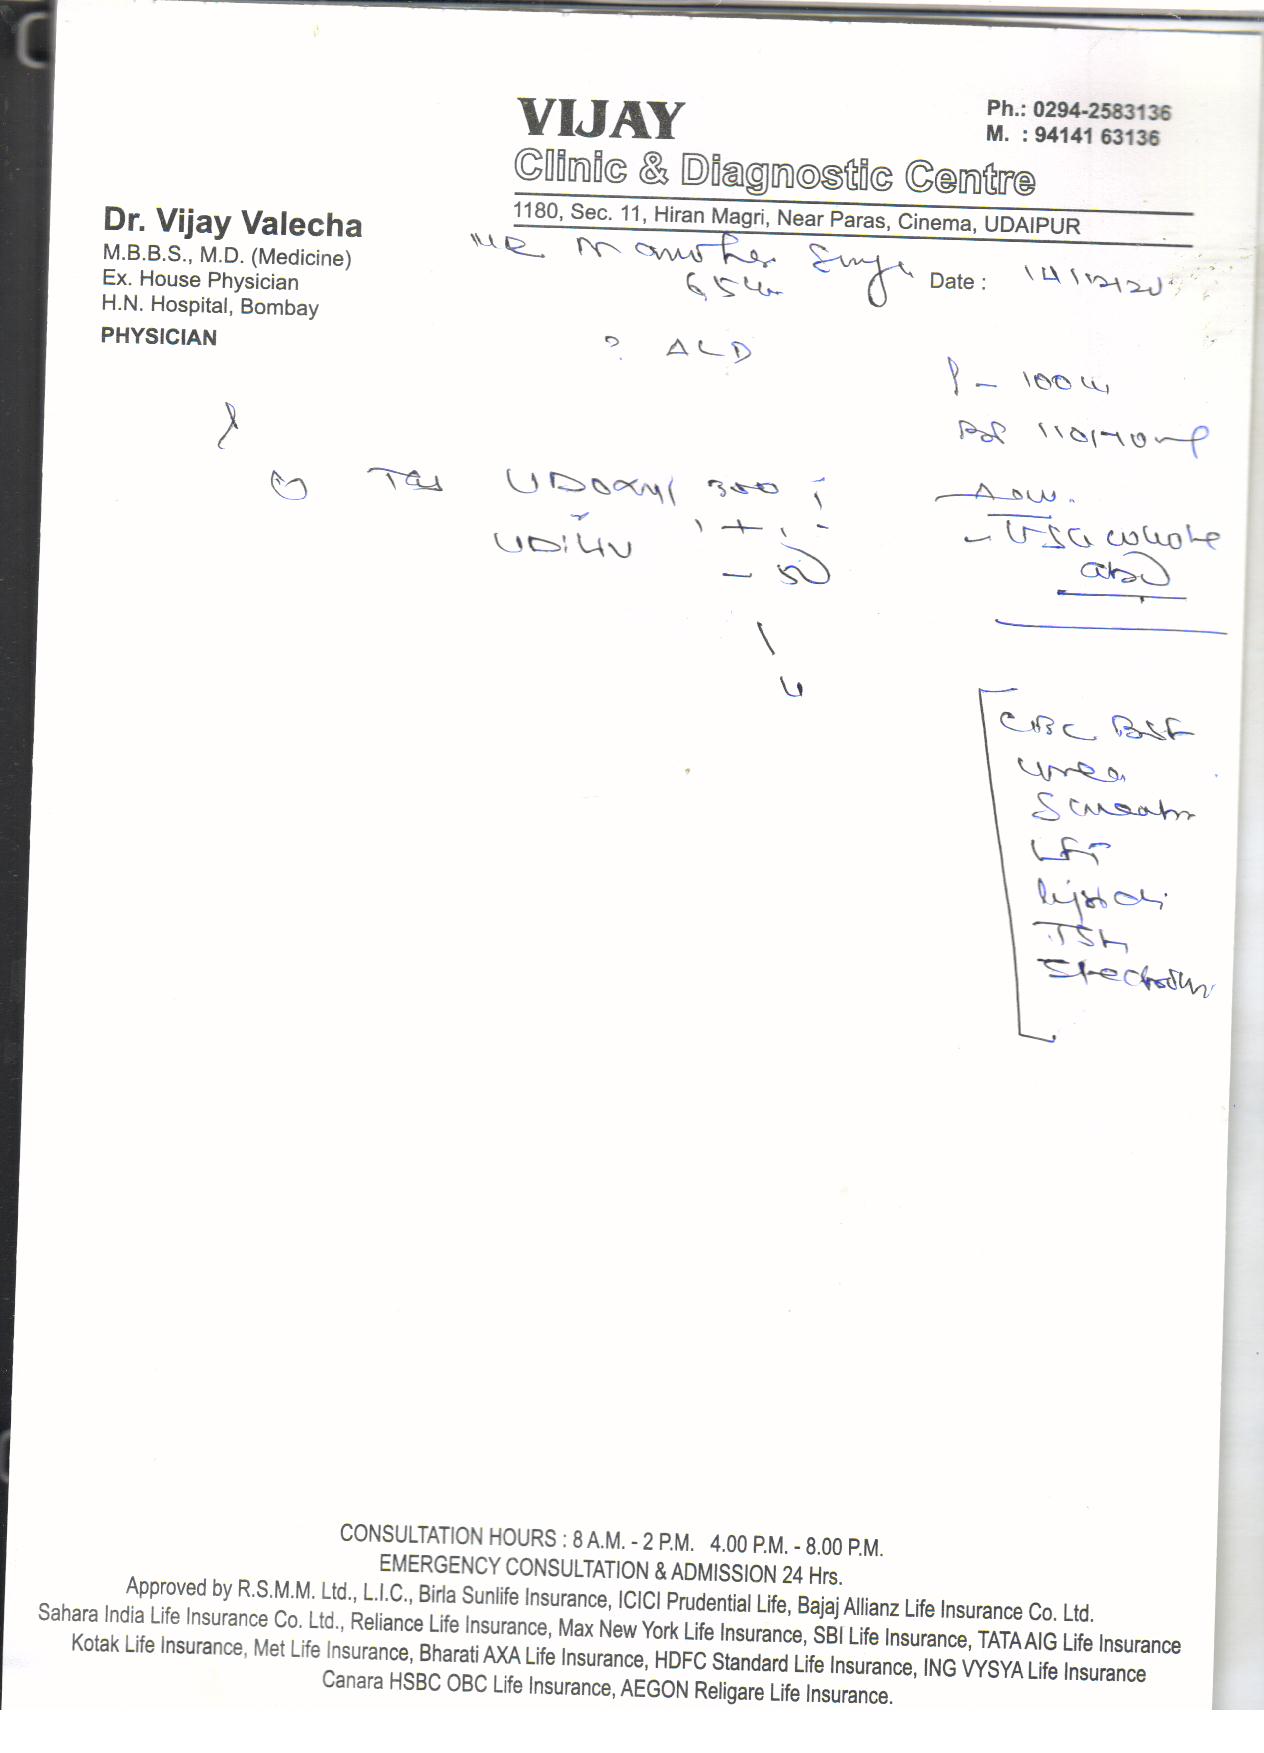 VIJAY
Clinic & Diagnostic Centre
Ph.: 0294-2583136
M. : 94141 63136
1180, Sec. 11, Hiran Magri, Near Paras, Cinema, UDAIPUR
Dr. Vijay Valecha
M.B.B.S., M.D. (Medicine)
Ex. House Physician
H.N. Hospital, Bombay
PHYSICIAN
MR Manoher Singh
65
Date : 14/12/20
? ALD
P - 100
BP 110/70
Tab UDOXYL 300
1 + 1
UDILIV
Adv.
- USG whole
abd
CBC BSF
urea
S creatn
LFT
TSH
CONSULTATION HOURS : 8 A.M. - 2 P.M. 4.00 P.M. - 8.00 P.M.
EMERGENCY CONSULTATION & ADMISSION 24 Hrs.
Approved by R.S.M.M. Ltd., L.I.C., Birla Sunlife Insurance, ICICI Prudential Life, Bajaj Allianz Life Insurance Co. Ltd.
Sahara India Life Insurance Co. Ltd., Reliance Life Insurance, Max New York Life Insurance, SBI Life Insurance, TATA AIG Life Insurance
Kotak Life Insurance, Met Life Insurance, Bharati AXA Life Insurance, HDFC Standard Life Insurance, ING VYSYA Life Insurance
Canara HSBC OBC Life Insurance, AEGON Religare Life Insurance.